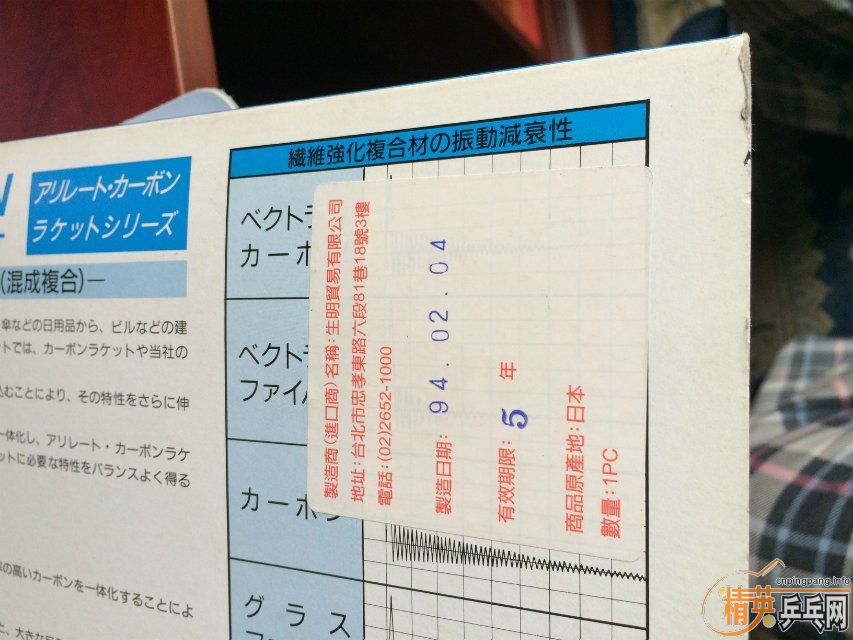 アリレート・カーボン
ラケットシリーズ
(混成複合)ー
傘などの日用品から、ビルなどの建
ットでは、カーボンラケットや当社の
込むことにより、その特性をさらに伸
一体化し、アリレート・カーボンラケ
ットに必要な特性をバランスよく得る
の高いカーボンを一体化することによ
繊維強化複合材の振動減衰性
ベクト
カーボ
ベクト
ファイ
カーボン
グラス
製造商(進口商)名稱:生明貿易有限公司
地址:台北市忠孝東路六段81巷18號3樓
電話:(02)2652-1000
製造日期: 94.02.04
有效期限: 5 年
商品原產地:日本
數量:1PC
cnpingpang.info
精英乒乓网